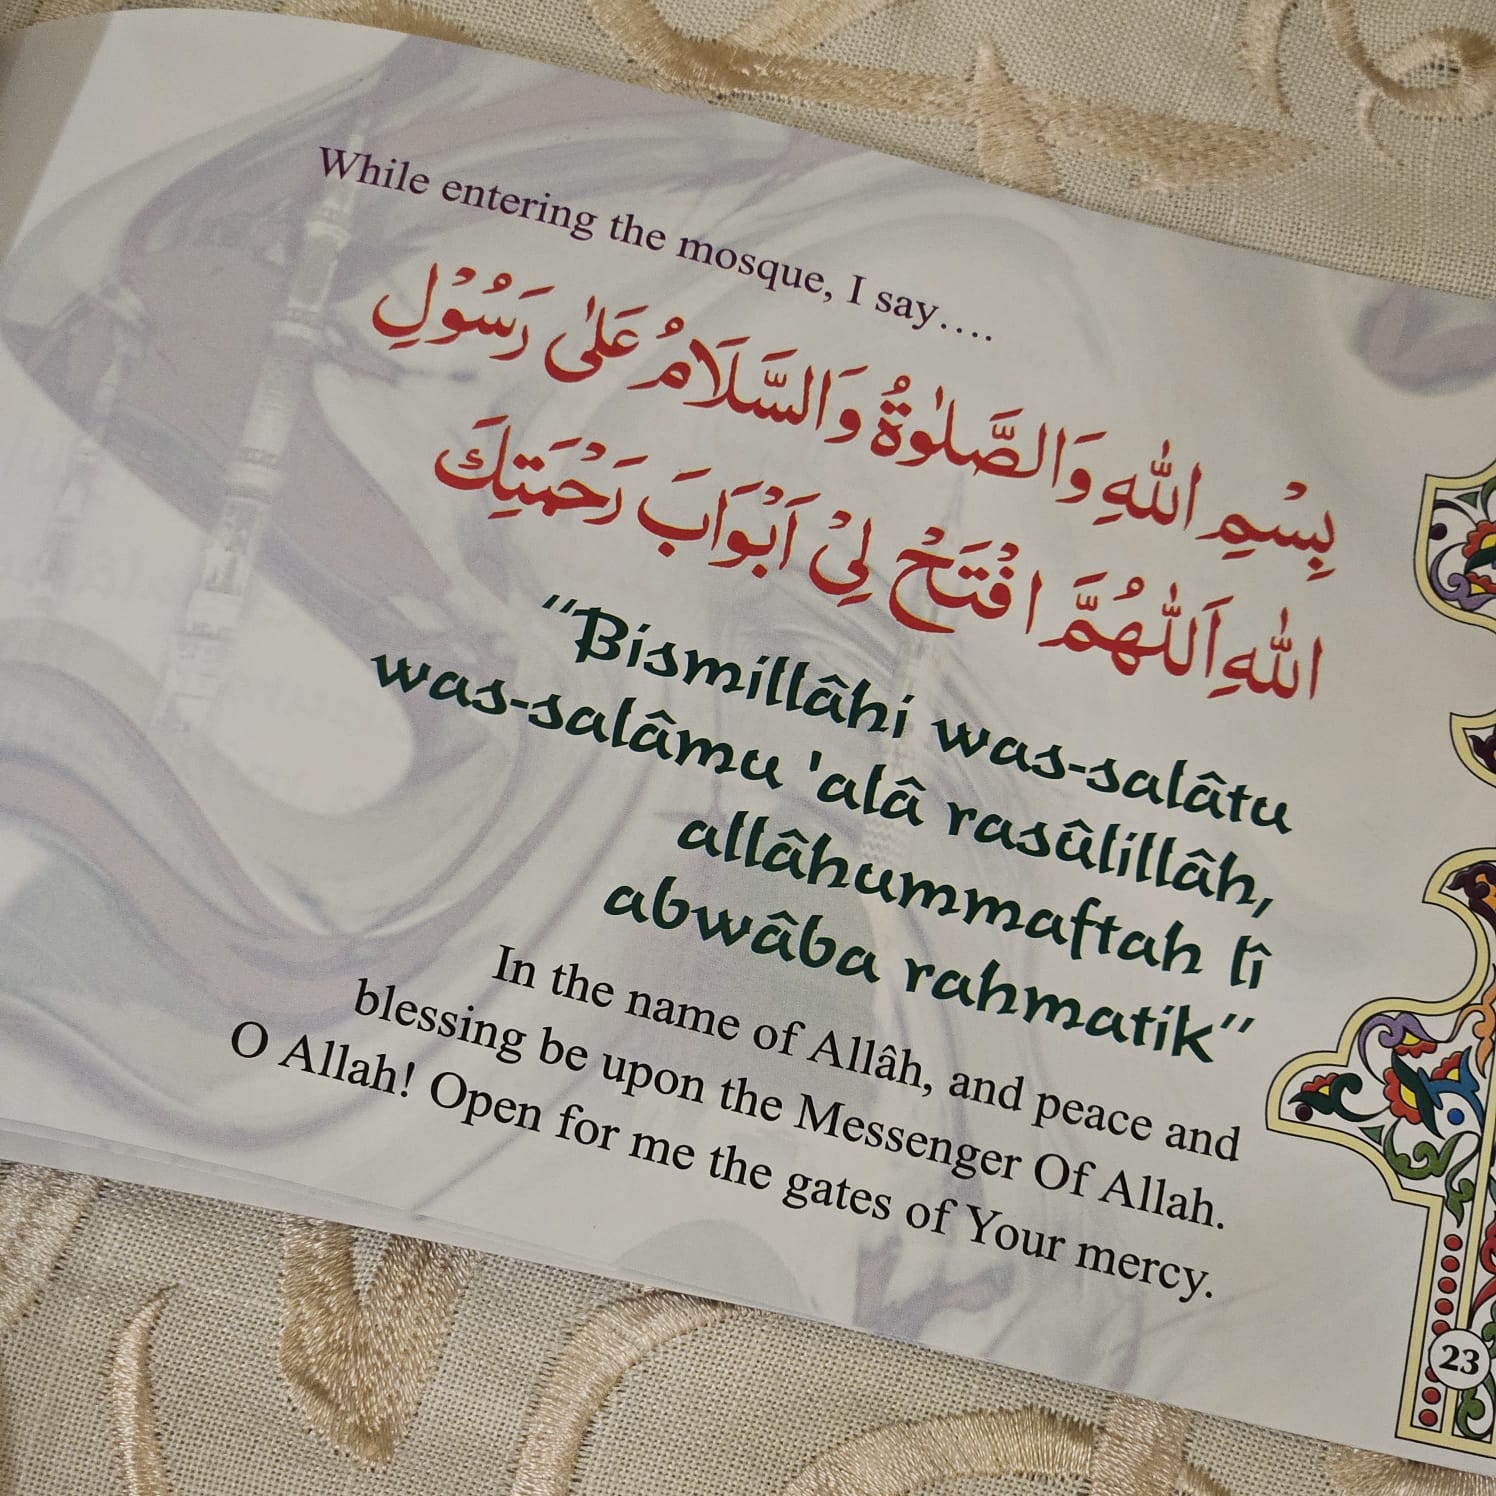 While entering the mosque, I say....
بِسْمِ اللّٰهِ وَالصَّلٰوةُ وَالسَّلَامُ عَلٰى رَسُوْلِ
اللّٰهِ اَللّٰهُمَّ افْتَحْ لِىْ اَبْوَابَ رَحْمَتِكَ
"Bismillâhi was-salâtu
was-salâmu 'alâ rasûlillâh,
allâhummaftah lî
abwâba rahmatik"
In the name of Allâh, and peace and
blessing be upon the Messenger Of Allah.
O Allah! Open for me the gates of Your mercy.
23